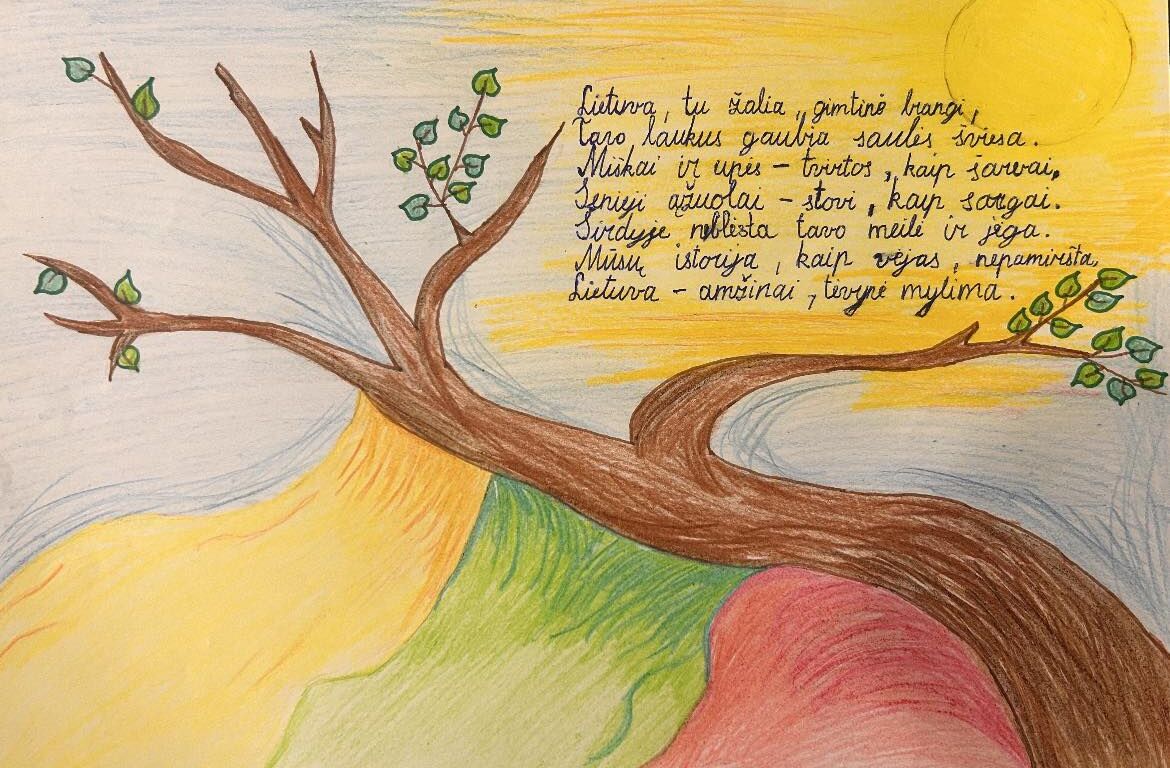 Lietuva, tu žalia, gimtinė brangi,
Tavo laukus gaubia saulės šviesa.
Miškai ir upės – tvirtos, kaip šarvai,
Senieji ąžuolai – stovi, kaip sargai.
Širdyje neblėsta tavo meilė ir jėga.
Mūsų istorija, kaip vėjas, nepamiršta,
Lietuva – amžinai, tėvynė mylima.